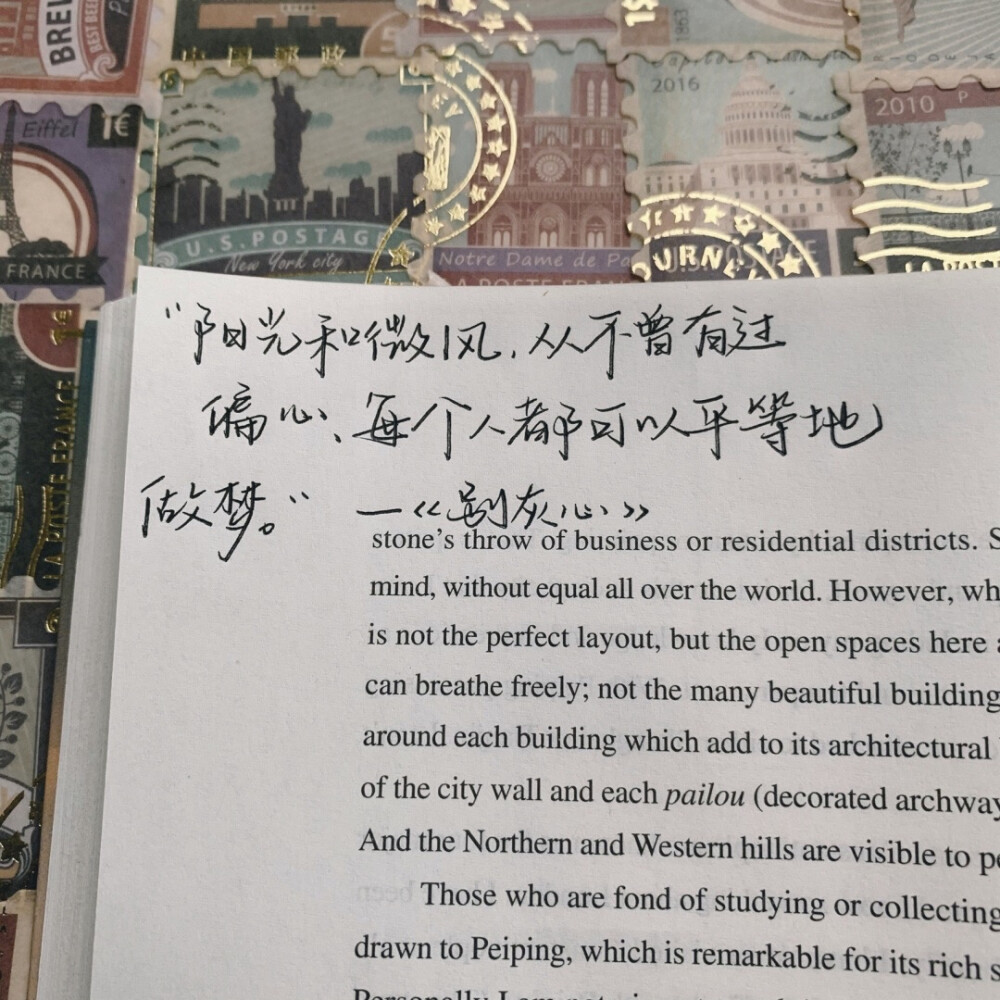 BREI
BEST BEE
中国邮政
5
1863
Eiffel 1€
2016
2010 P
U.S.POSTAG
New York city
Notre Dame de Pa
URNE
FRANCE
LA POSTE FRANCE
“阳光和微风，从不曾有过
偏心、每个人都可以平等地
做梦。” —《别灰心》
stone's throw of business or residential districts. S
mind, without equal all over the world. However, wh
is not the perfect layout, but the open spaces here a
can breathe freely; not the many beautiful building
around each building which add to its architectural
of the city wall and each pailou (decorated archway
And the Northern and Western hills are visible to pe
Those who are fond of studying or collecting
drawn to Peiping, which is remarkable for its rich s